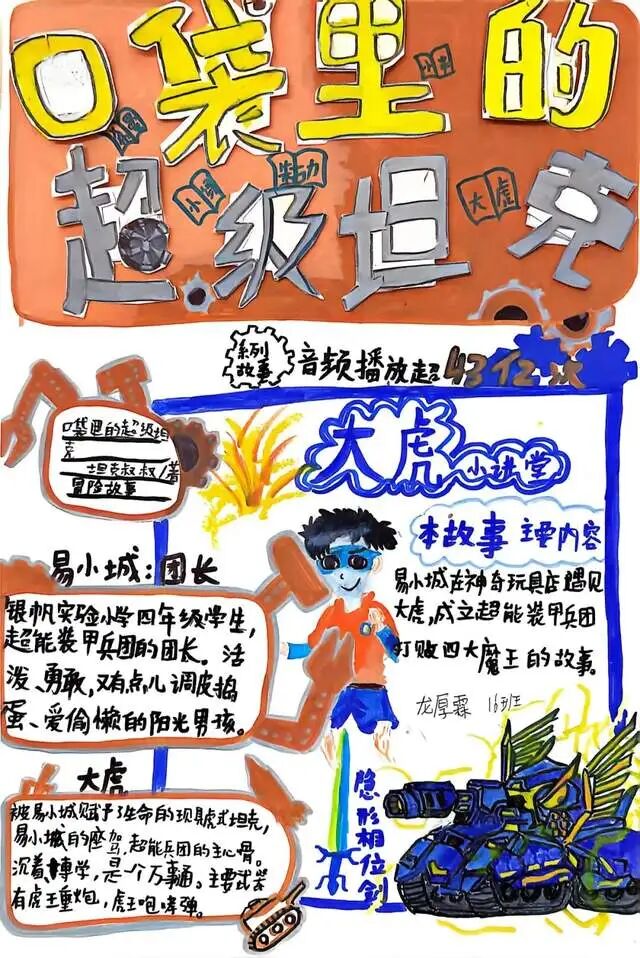 口袋里的
超级坦克
小虎
大虎
系列
故事
音频播放超43亿次
口袋里的超级坦
克
坦克叔叔/著
冒险故事
大虎小讲堂
本故事主要内容
易小城在神奇玩具店遇见
大虎,成立超能装甲兵团
打败四大魔王的故事。
龙厚霖 16班
易小城:团长
银帆实验小学四年级学生,
超能装甲兵团的团长。活
泼、勇敢,又有点儿调皮捣
蛋、爱偷懒的阳光男孩。
大虎
被易小城赋予了生命的现虎式坦克,
易小城的座驾,超能兵团的主心骨。
沉着、博学,是一个万事通。主要武器
有虎王重炮,虎王咆哮弹。
隐形相位剑